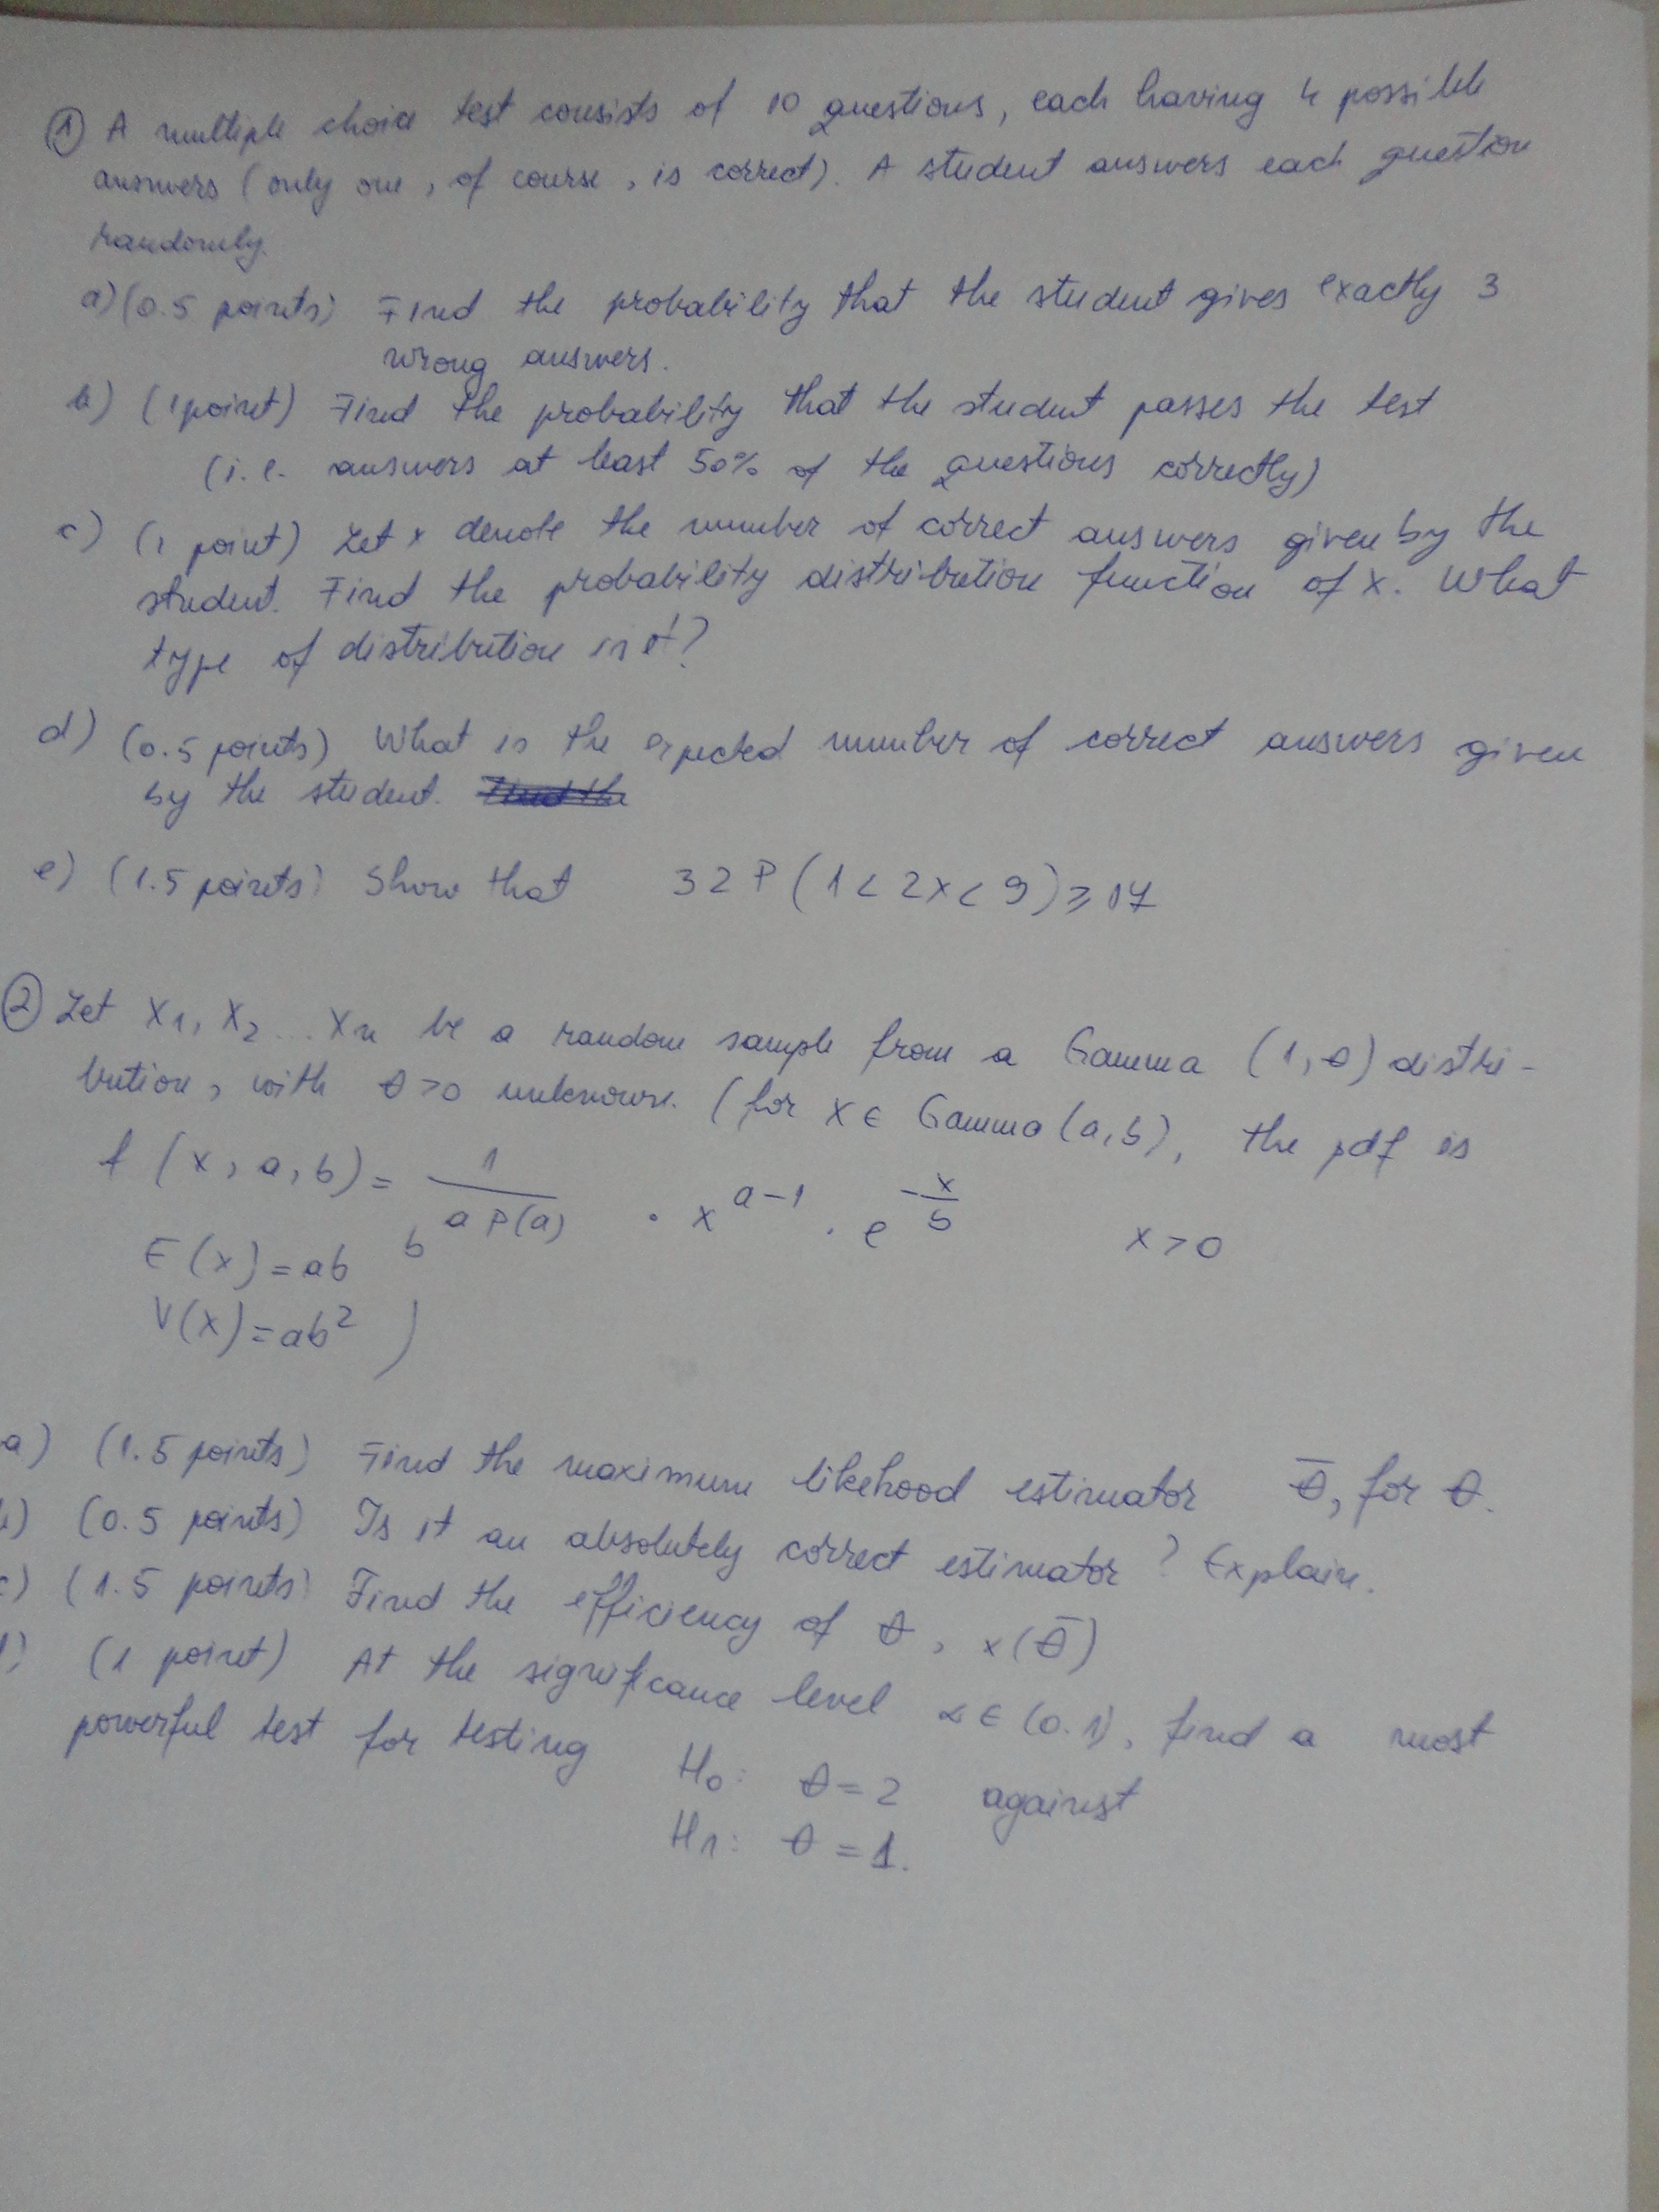 ① A multiple choice test consists of 10 questions, each having 4 possible
answers (only one, of course, is correct). A student answers each question
randomly.
a) (0.5 points) Find the probability that the student gives exactly 3
wrong answers.
b) (1 point) Find the probability that the student passes the test
(i.e. answers at least 50% of the questions correctly)
c) (1 point) Let x denote the number of correct answers given by the
student. Find the probability distribution function of X. What
type of distribution is it?
d) (0.5 points) What is the expected number of correct answers given
by the student.
e) (1.5 points) Show that 32 P(1 < 2X < 9) ≥ 17
② Let X1, X2 ... Xn be a random sample from a Gamma (1, θ) distri-
bution, with θ > 0 unknown. (for X ∈ Gamma(a, b), the pdf is
f(x, a, b) = 1 / b^a Γ(a) · x^(a-1) · e^(-x/b) x > 0
E(x) = ab
V(x) = ab² )
a) (1.5 points) Find the maximum likehood estimator θ̅, for θ.
b) (0.5 points) Is it an absolutely correct estimator? Explain.
c) (1.5 points) Find the efficiency of θ, x(θ̅)
d) (1 point) At the significance level α ∈ (0.1), find a most
powerful test for testing H0: θ = 2 against
H1: θ = 1.